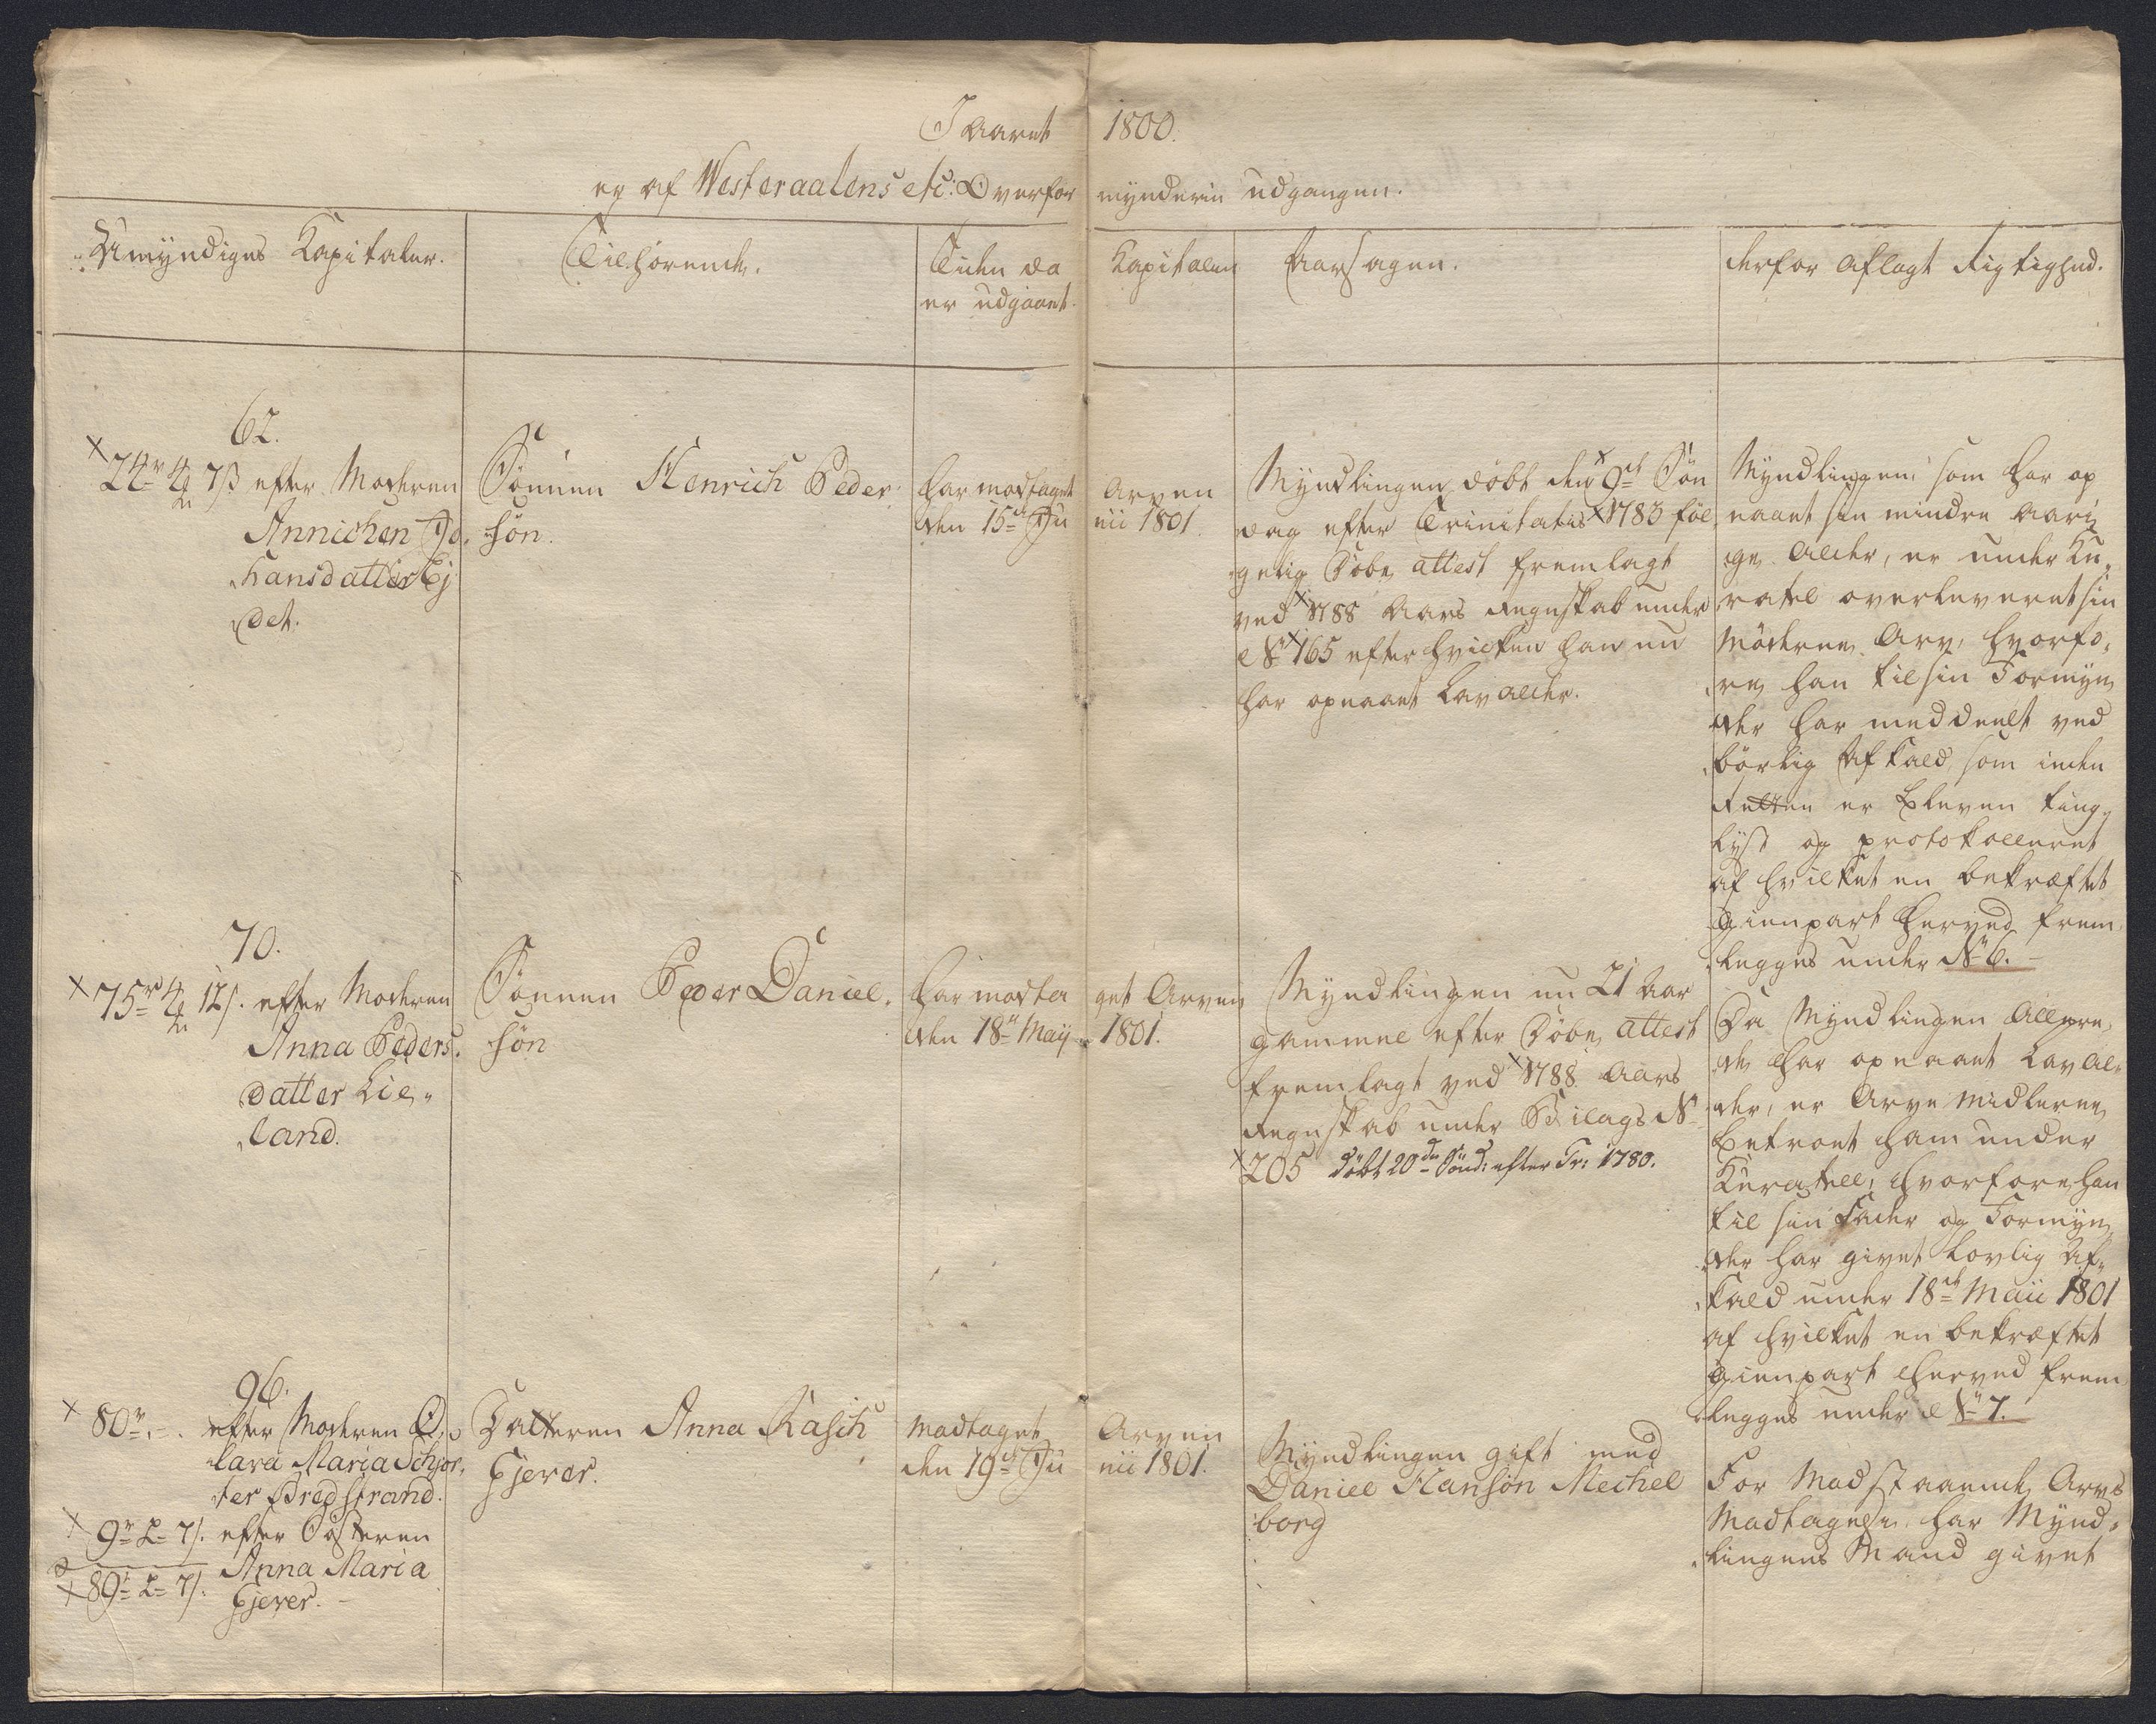 I Aaret 1800.
er af Westeraalens etc: Overformynderie udgangen.
Umyndiges Kapitaler.
Tilhørende.
Tiden da Kapitalen
er udgaaet.
Aarsagen.
derfor aflagt Rigtighed.
62.
24r 4 7ß efter Moderen
Annichen Jo-
hansdatter Ej
det.
Sønnen Henrich Peder
søn.
har modtaget Arven
den 15de Ju nii 1801.
Myndlingen døbt den 9de Søn
dag efter Trinitatis 1783 føl
gelig Døbe attest fremlagt
ved 1788 Aars Regnskab under
No 165 efter hvilken han nu
har opnaaet Lavalder.
Myndlingen som har op
naaet sin mindre aari
ge Alder, er under Ku-
ratel overleveret sin
Mødrene Arv, hvorfo-
re han til sin Formyn
der har meddeelt ved
børlig Afkald, som inden
Retten er bleven ting-
lyst og protokolleret
af hvilket en bekræftet
Gienpart herved frem
legges under No 6.
70.
75r 4 12s. efter Moderen
Anna Peders-
datter Lie-
land.
Sønnen Peder Daniel-
søn
har modta get Arven
den 18de Maij 1801.
Myndlingen nu 21 Aar
gammel efter Døbe attest
fremlagt ved 1788 Aars
Regnskab under Bilags No
205 døbt 20de Sønd: efter Tr: 1780.
Da Myndlingen allere-
de har opnaaet Laval-
der, er Arve Midlerne
betroet ham under
Kuratell, hvorfore han
til sin Fader og Formyn
der har givet lovlig Af-
kald under 18de Maii 1801
af hvilket en bekræftet
Gienpart herved frem
legges under No 7.
96.
80r. -. efter Moderen O-
lava Maria Schjor-
ter Bredstrand.
9r 2- 7s. efter Søsteren
89r 2- 7s. Anna Maria
Gjever. -
Datteren Anna Rasch
Gjever.
Modtaget Arven
den 19de Ju nii 1801.
Myndlingen gift med
Daniel Hansøn Mechel
borg
For Modstaaende Arvs
Modtagelse har Mynd-
lingens Mand givet